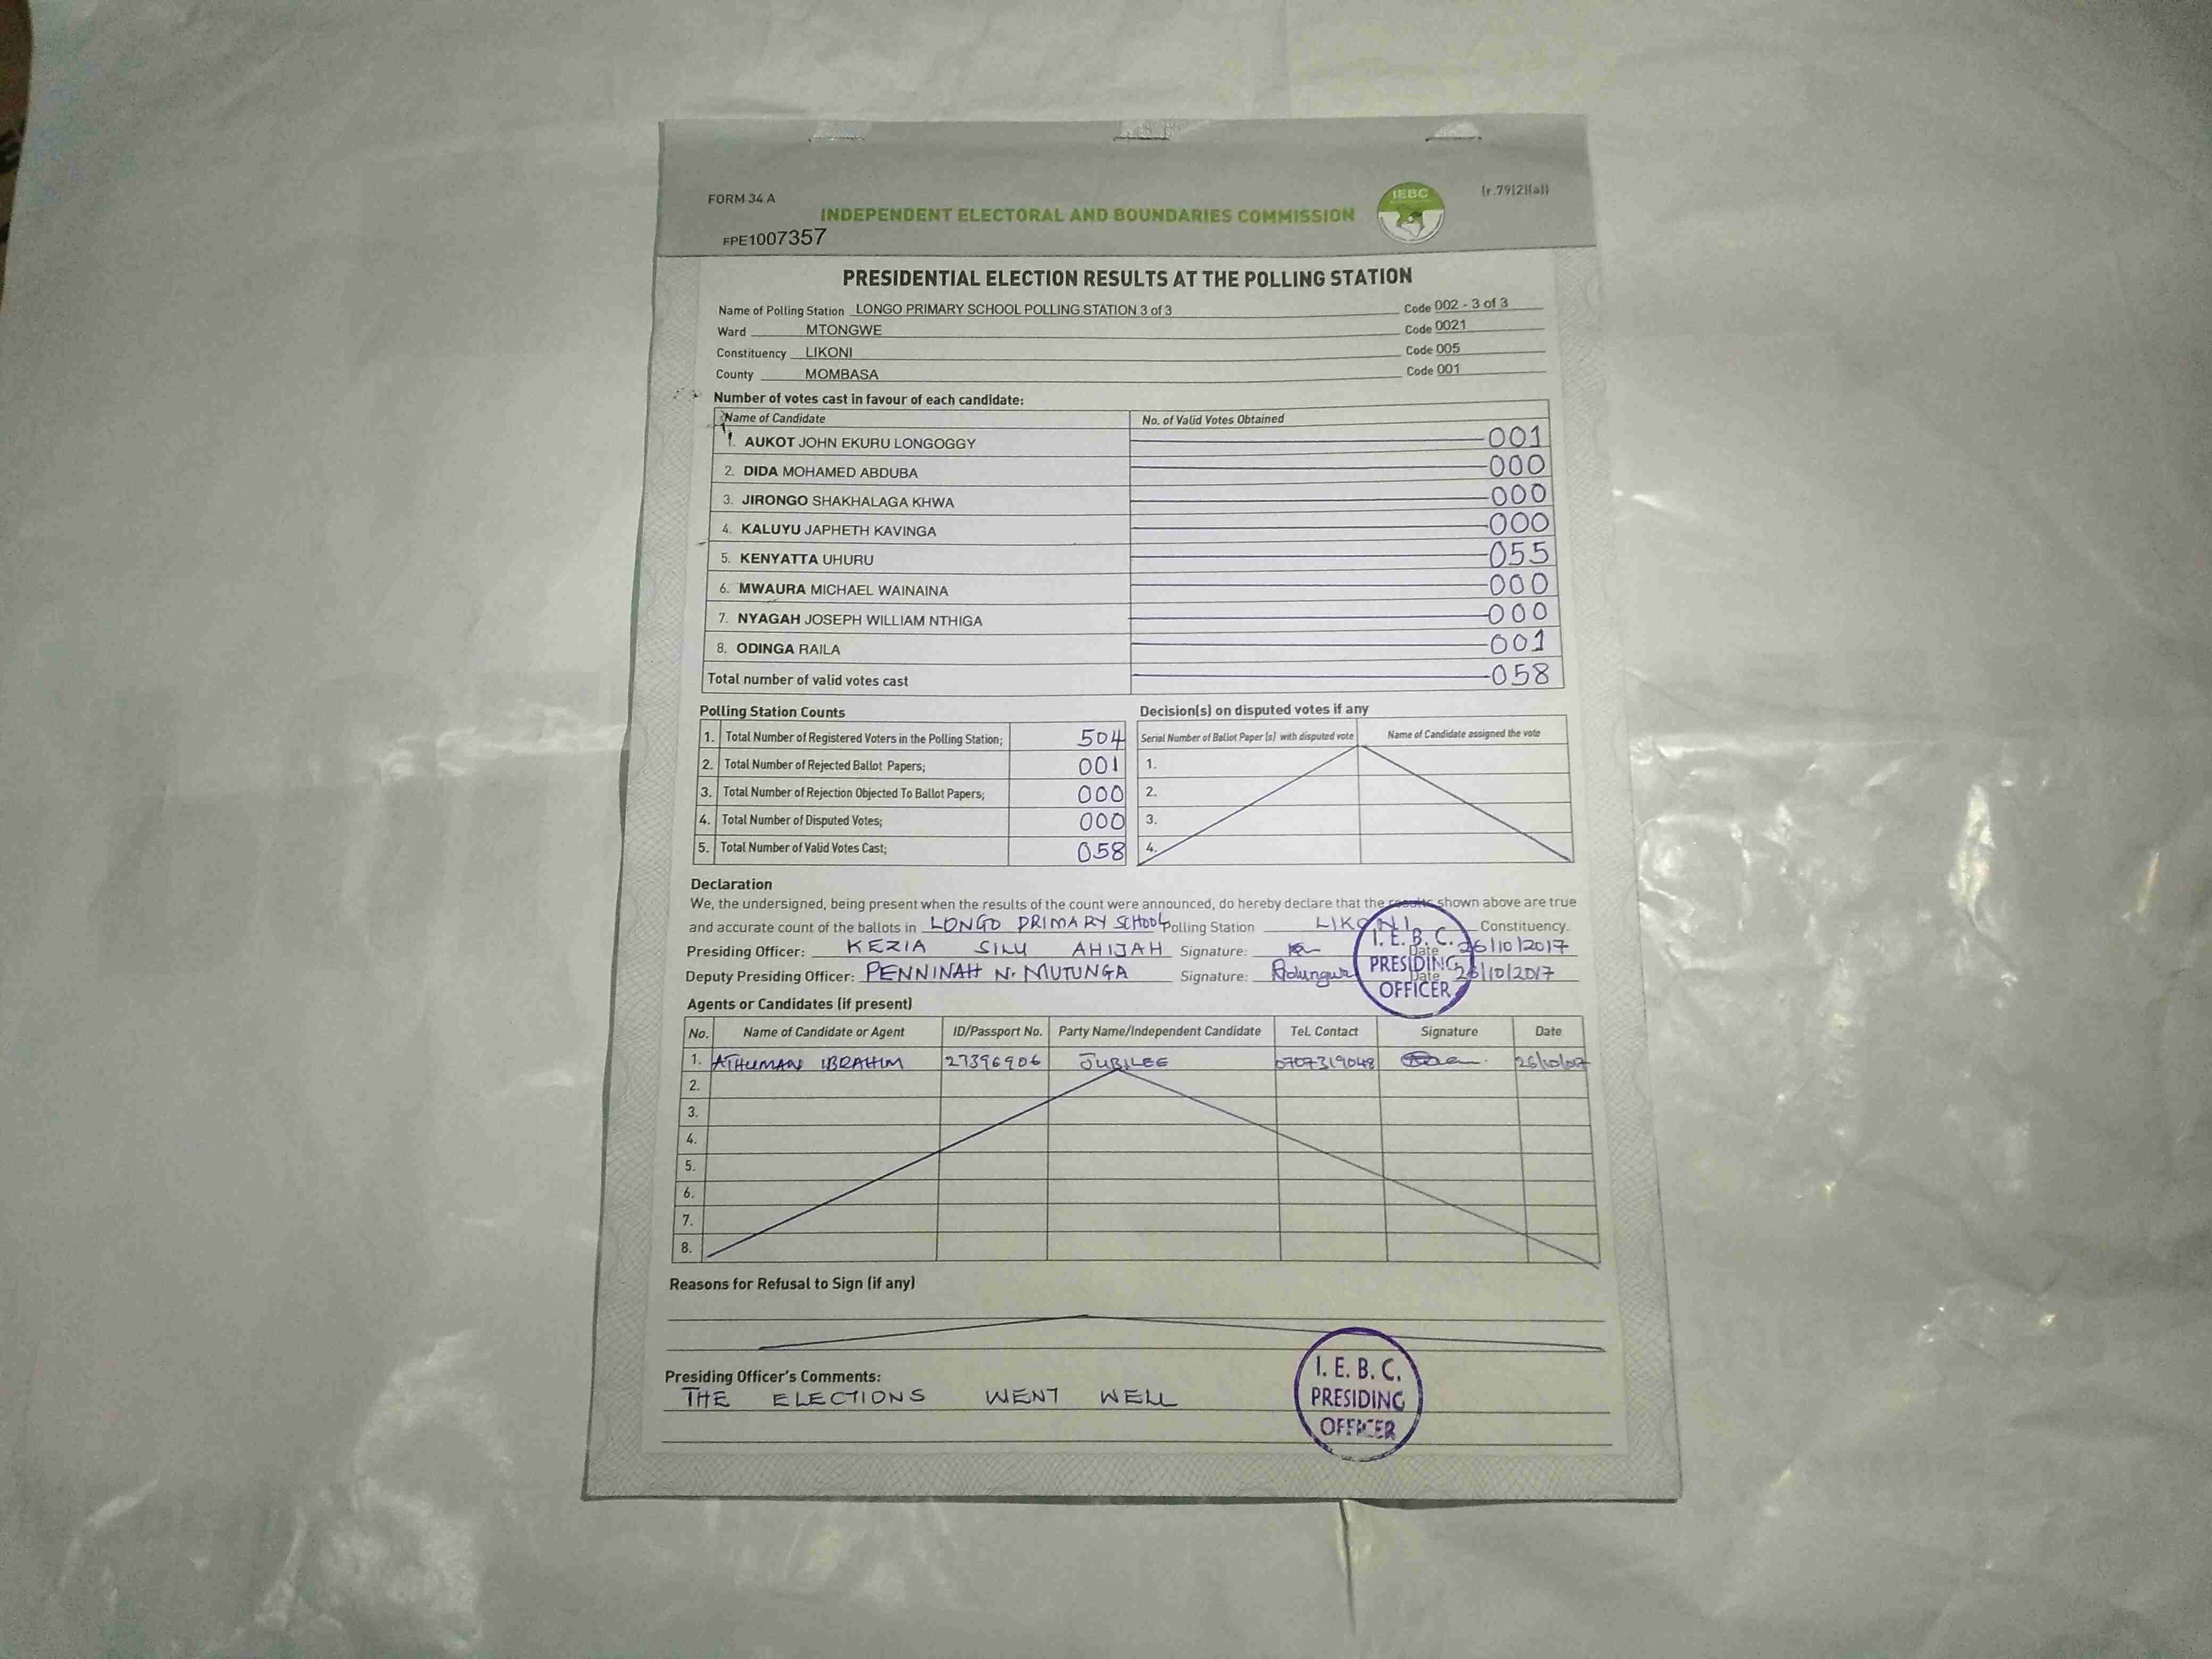 FORM 34 A
(r.79(2)(a))
INDEPENDENT ELECTORAL AND BOUNDARIES COMMISSION
IEBC
FPE1007357
PRESIDENTIAL ELECTION RESULTS AT THE POLLING STATION
Name of Polling Station LONGO PRIMARY SCHOOL POLLING STATION 3 of 3 Code 002 - 3 of 3
Ward MTONGWE Code 0021
Constituency LIKONI Code 005
County MOMBASA Code 001
Number of votes cast in favour of each candidate:
Name of Candidate No. of Valid Votes Obtained
1. AUKOT JOHN EKURU LONGOGGY 001
2. DIDA MOHAMED ABDUBA 000
3. JIRONGO SHAKHALAGA KHWA 000
4. KALUYU JAPHETH KAVINGA 000
5. KENYATTA UHURU 055
6. MWAURA MICHAEL WAINAINA 000
7. NYAGAH JOSEPH WILLIAM NTHIGA 000
8. ODINGA RAILA 001
Total number of valid votes cast 058
Polling Station Counts
1. Total Number of Registered Voters in the Polling Station; 504
2. Total Number of Rejected Ballot Papers; 001
3. Total Number of Rejection Objected To Ballot Papers; 000
4. Total Number of Disputed Votes; 000
5. Total Number of Valid Votes Cast; 058
Decision(s) on disputed votes if any
Serial Number of Ballot Paper (s) with disputed vote Name of Candidate assigned the vote
1.
2.
3.
4.
Declaration
We, the undersigned, being present when the results of the count were announced, do hereby declare that the results shown above are true
and accurate count of the ballots in LONGO PRIMARY SCHOOL Polling Station LIKONI Constituency.
Presiding Officer: KEZIA SILU AHIJAH Signature: Date 26/10/2017
Deputy Presiding Officer: PENNINAH N. MUTUNGA Signature: Date 26/10/2017
I. E. B. C.
PRESIDING
OFFICER
Agents or Candidates (if present)
No. Name of Candidate or Agent ID/Passport No. Party Name/Independent Candidate Tel. Contact Signature Date
1. ATHUMAN IBRAHIM 27396906 JUBILEE 0707319048 26/10/017
2.
3.
4.
5.
6.
7.
8.
Reasons for Refusal to Sign (if any)
Presiding Officer's Comments:
THE ELECTIONS WENT WELL
I. E. B. C.
PRESIDING
OFFICER